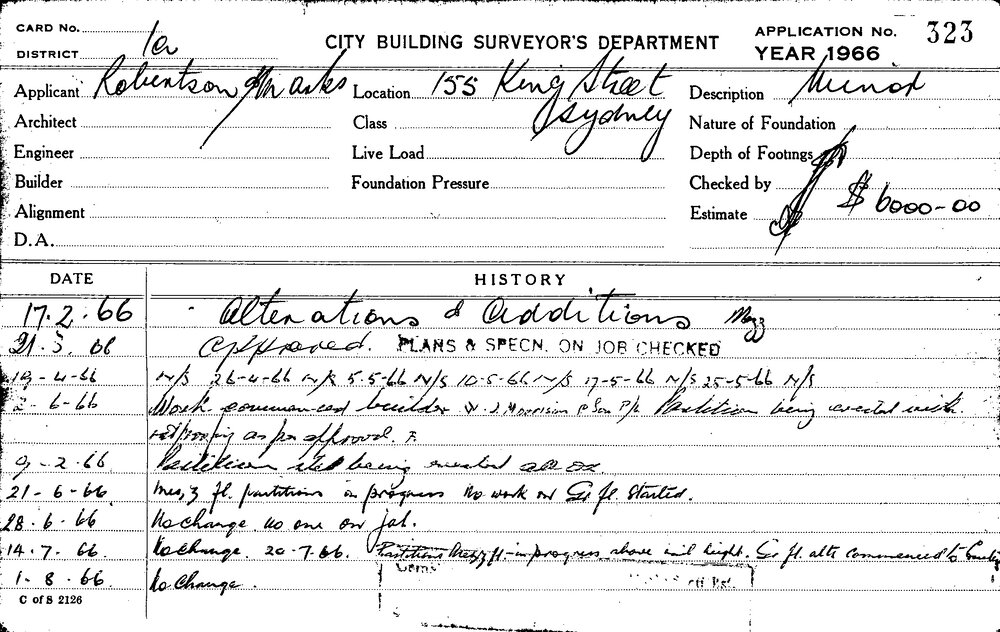 CARD No.
DISTRICT 1a
CITY BUILDING SURVEYOR'S DEPARTMENT
APPLICATION No. 323
YEAR 1966
Applicant Robertson & Marks Location 155 King Street Sydney Description Minor
Architect Class Nature of Foundation
Engineer Live Load Depth of Footings
Builder Foundation Pressure Checked by
Alignment Estimate $ 6000-00
D.A.
DATE HISTORY
17.2.66 Alterations & additions Mezz
21.3.66 Approved. PLANS & SPECN. ON JOB CHECKED
19-4-66 N/S 26-4-66 N/S 5-5-66 N/S 10-5-66 N/S 17-5-66 N/S 25-5-66 N/S
2-6-66 Work commenced builder W. J. Morrison & Son P/L Partition being erected with
as per approval.
9-2-66 Partition still being erected
21-6-66 Mezz fl. partitions in progress No work on Gr fl. started.
28.6.66 No change no one on job.
14.7.66 No change. 20-7.66. Partitions Mezz fl. in progress above sill height. Gr fl. alts commenced to
1.8.66 No change.
C of S 2126